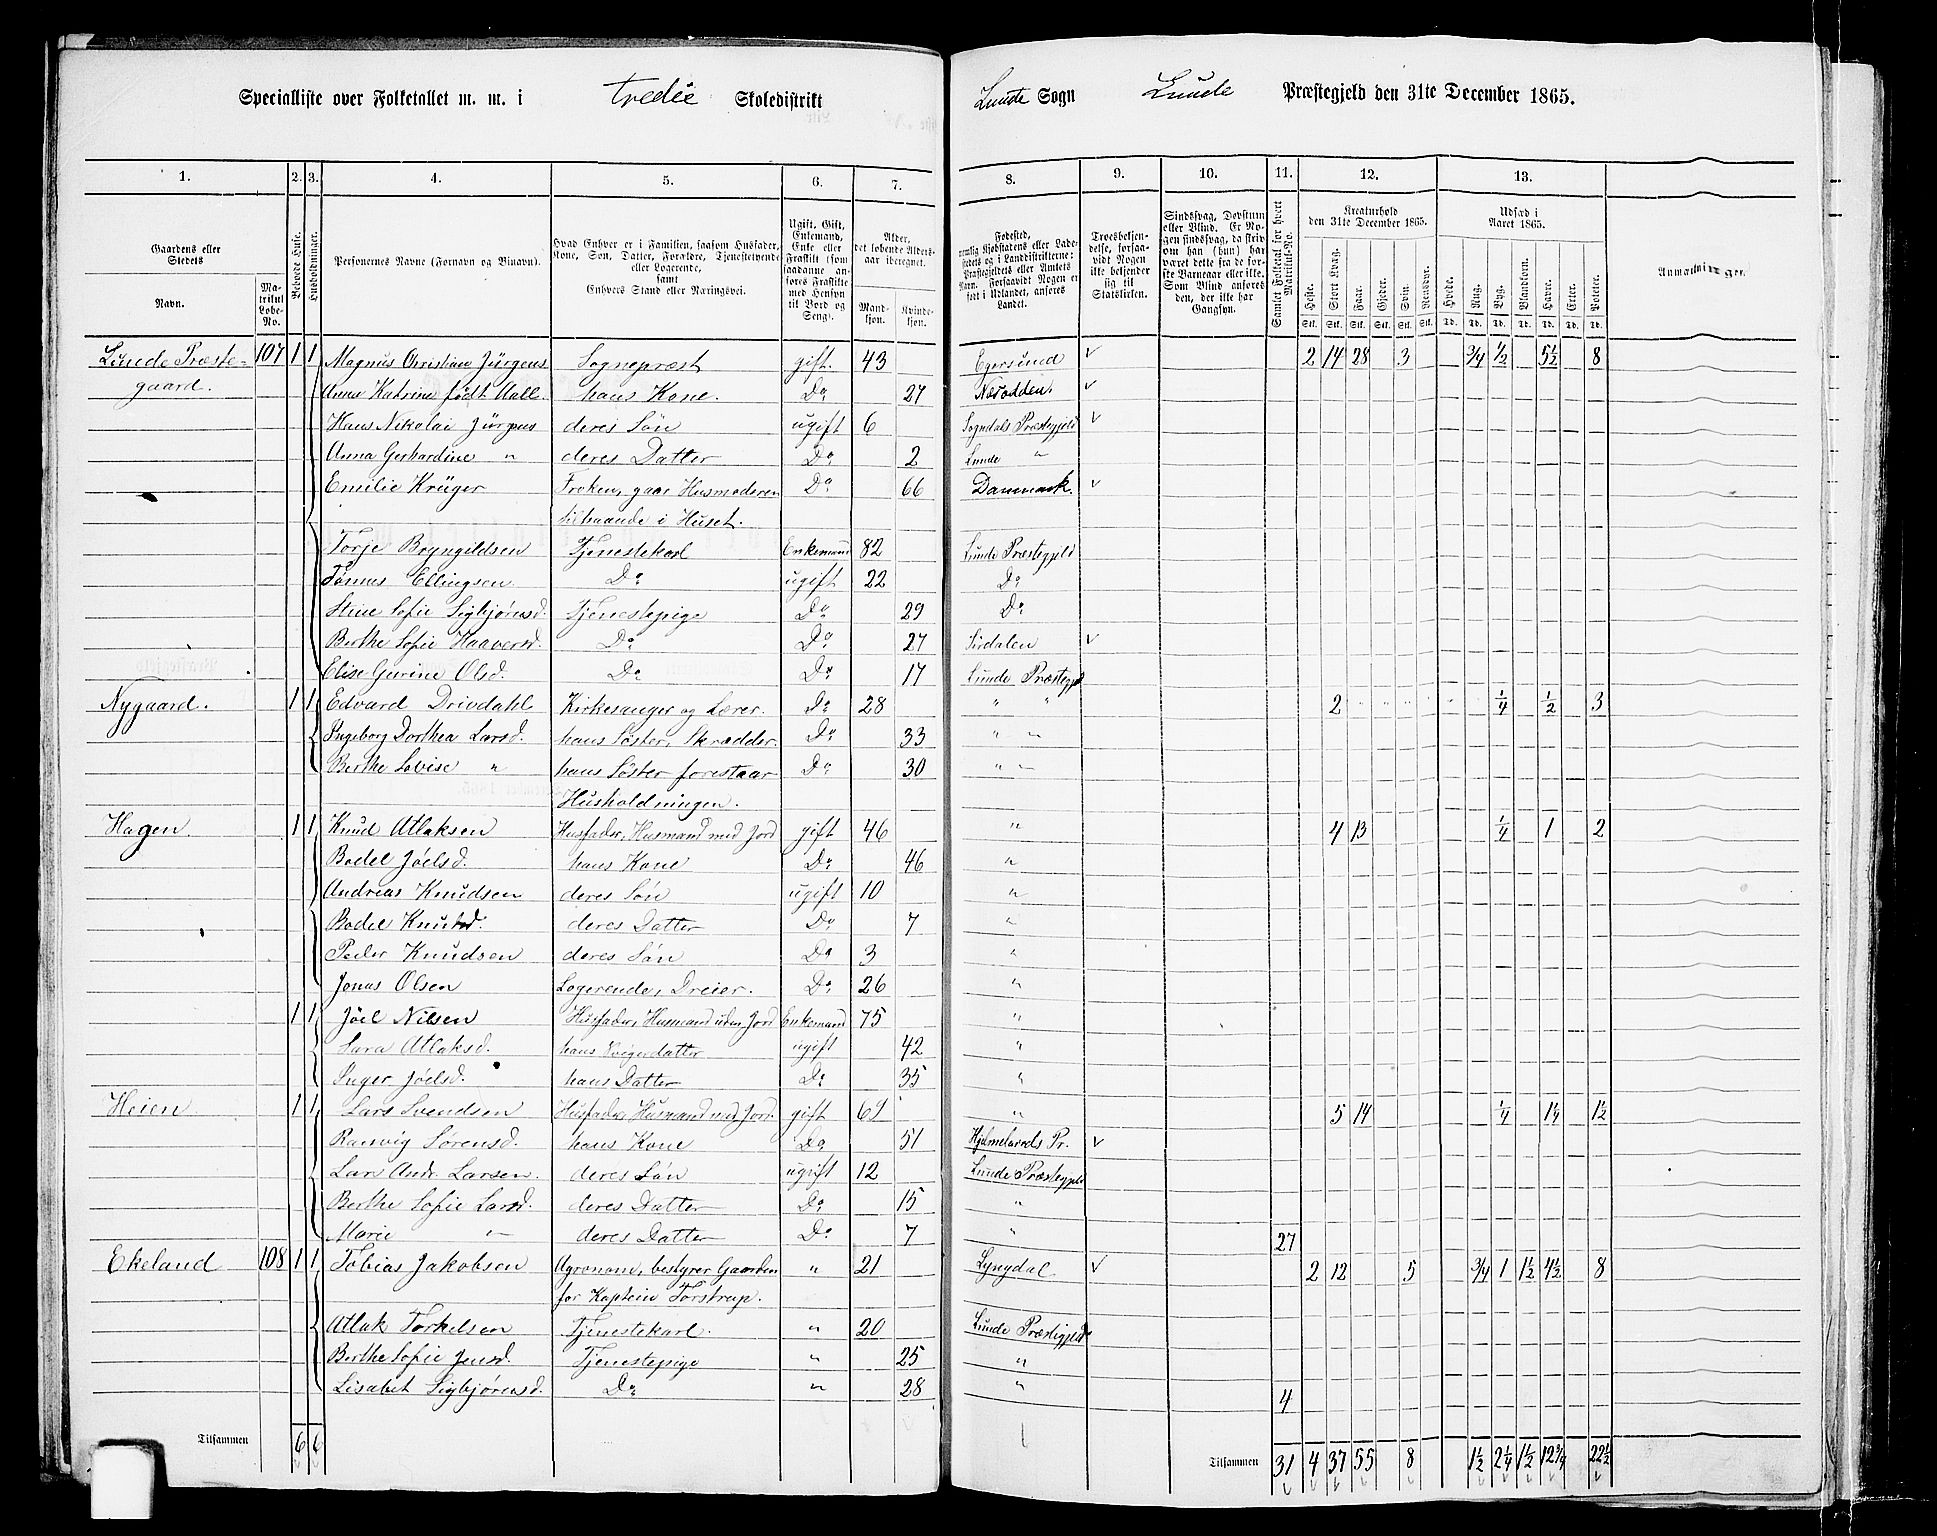 Specialliste over Folketallet m. m. i tredie Skoledistrikt Lunde Sogn Lunde Præstegjeld den 31te December 1865.
1. 2. 3. 4. 5. 6. 7. 8. 9. 10. 11. 12. 13.
Gaardens eller Stedets Navn. Matrikul Løbe-No. Beboede Huse. Husholdninger. Personernes Navne (Fornavn og Tilnavn). Hvad Enhver er i Familien, saasom Husfader, Kone, Søn, Datter, Forældre, Tjenestetyende eller Logerende, samt Enhvers Stand eller Næringsvei. Ugift, Gift, Enkemand, Enke eller Fraskilt (som saadanne anføres Fraskilte med Hensyn til Bord og Seng). Alder, det løbende Aldersaar iberegnet. Mandkjøn. Kvindekjøn.
Fødested, Troesbekjendelse, forsaavidt Nogen ikke bekjender sig til Statskirken. Sindssvag, Døvstum eller Blind. Samlet Folketal for hvert Matrikul-No. Kreaturhold den 31te December 1865. Udsæd i Aaret 1865. Anmærkninger.
Heste. Stort Kvæg. Faar. Gjeder. Svin. Rensdyr. Hvede. Rug. Byg. Blandkorn. Havre. Erter. Poteter.
Lunde Præste- 107 1 1 Magnus Christian Jürgens Sognepræst gift. 43 Egersund 2 14 28 3 3/4 1/2 5 1/2 8
gaard. Anna Katrine født Aall. hans Kone. Do 27 Næsodden.
Hans Nikolai Jürgens deres Søn ugift 6 Sogndals Præstegjeld
Anna Gerhardine " deres Datter Do 2 Lunde "
Emilie Krüger Frøken, gaar Husmoderen Do 66 Danmark.
tilhaande i Huset.
Torje Bryngildsen Tjenestekarl Enkemand 82 Lunde Præstegjeld
Tønnes Ellingsen Do ugift 22 Do
Stine Sofie Sigbjørnsd. Tjenestepige Do 29 Do
Berthe Sofie Haaversd. Do Do 27 Sirdalen
Elise Gurine Olsd. Do Do 17 Lunde Præstegjeld
Nygaard. 1 1 Edvard Drivdahl Kirkesanger og Lærer. Do 28 " " 2 " " " " " 1/4 1/2 3
Ingeborg Dorthea Larsd. hans Søster, Skrædder. Do 33 " "
Berthe Lovise " hans Søster forestaar Do 30 " "
Husholdningen.
Hagen 1 1 Knud Atlaksen Husfader, Husmand med Jord gift 46 " 4 13 1/4 1 2
Bodel Joelsd. hans Kone Do 46 "
Andreas Knudsen deres Søn ugift 10 "
Bodel Knutsd. deres Datter Do 7 "
Peder Knudsen deres Søn Do 3 "
Jonas Olsen Logerende, Dreier. Do 26 "
1 1 Joel Nilsen Husfader, Husmand uden Jord Enkemand 75 "
Sara Atlaksd. hans Svigerdatter ugift 42 "
Inger Joelsd. hans Datter Do 35 "
Heien 1 1 Lars Svendsen Husfader, Husmand med Jord. gift 69 " 5 14 1/4 1 1/4 1 1/2
Ranvig Sørensd. hans Kone Do 51 Hjelmelands Pr.
Lars Andr. Larsen. deres Søn ugift 12 Lunde Præstegjeld
Berthe Sofie Larsd. deres Datter Do 15 "
Marie " deres Datter Do 7 " 27
Ekeland 108 1 1 Tobias Jakobsen Agronom, bestyrer Gaarden " 21 Lyngdal 2 12 5 3/4 1 1 1/2 4 1/2 8
for Kaptein Torstrup.
Atlak Torkelsen Tjenestekarl. " 20 Lunde Præstegjeld
Berthe Sofie Jensd. Tjenestepige " 25 "
Lisabet Sigbjørnsd. Do " 28 " 4
Tilsammen 6 6 Tilsammen 31 4 37 55 8 1 1/2 2 1/4 1 1/2 12 3/4 22 1/2